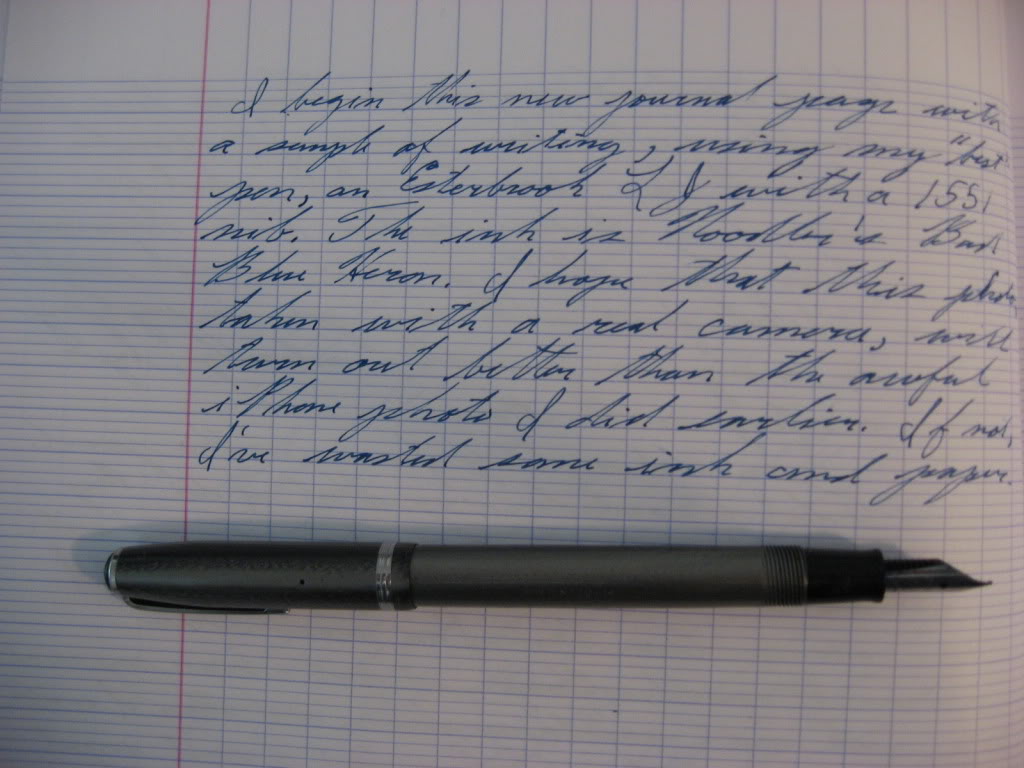 I begin this new journal page with
a sample of writing, using my "best"
pen, an Esterbrook LJ with a 1551
nib. The ink is Noodler's Bad
Blue Heron. I hope that this photo
taken with a real camera, will
turn out better than the awful
iPhone photo I did earlier. If not,
I've wasted some ink and paper.